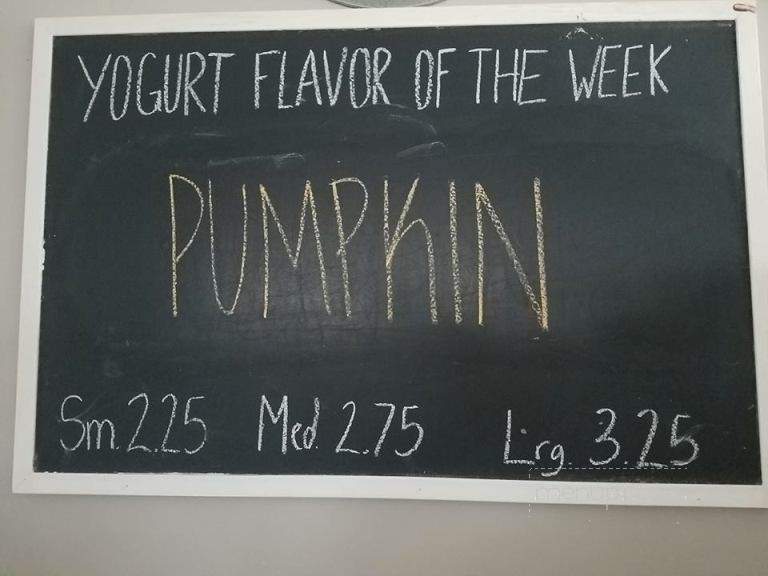 YOGURT FLAVOR OF THE WEEK
PUMPKIN
Sm. 2.25 Med. 2.75 Lrg 3.25